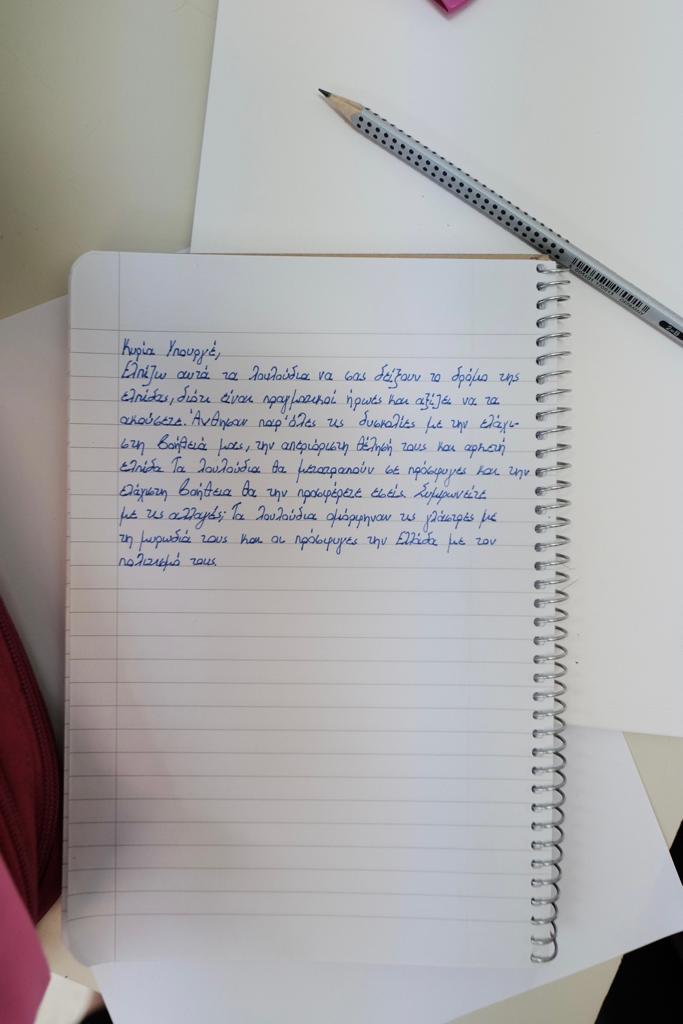 Κυρία Υπουργέ,
Ελπίζω αυτά τα λουλούδια να σας δείξουν το δρόμο της
ελπίδας, διότι είναι πραγματικοί ήρωες και αξίζει να τα
ακούσετε. Άνθησαν παρ'όλες τις δυσκολίες με την ελάχι-
στη βοήθειά μας, την απεριόριστη θέλησή τους και αρκετή
ελπίδα. Τα λουλούδια θα μετατραπούν σε πρόσφυγες και την
ελάχιστη βοήθεια θα την προσφέρετε εσείς. Συμφωνείτε
με τις αλλαγές; Τα λουλούδια ομόρφηναν τις γλάστρες με
τη μυρωδιά τους και οι πρόσφυγες την Ελλάδα με τον
πολιτισμό τους.